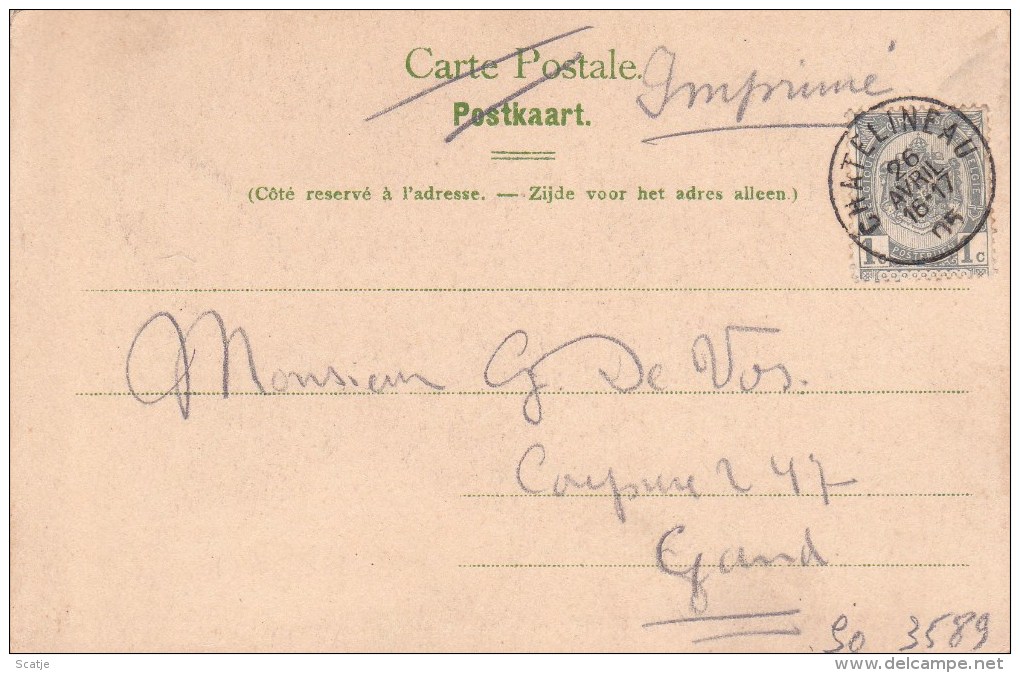 Carte Postale.
Imprimé
Postkaart.
(Côté reservé à l'adresse. — Zijde voor het adres alleen.)
CHATELINEAU
26
AVRIL
16-17
05
POSTERIJEN
1c 1c
Monsieur G. De Vos.
Coupure 247
Gand
3589
Scatje
delcampe.net